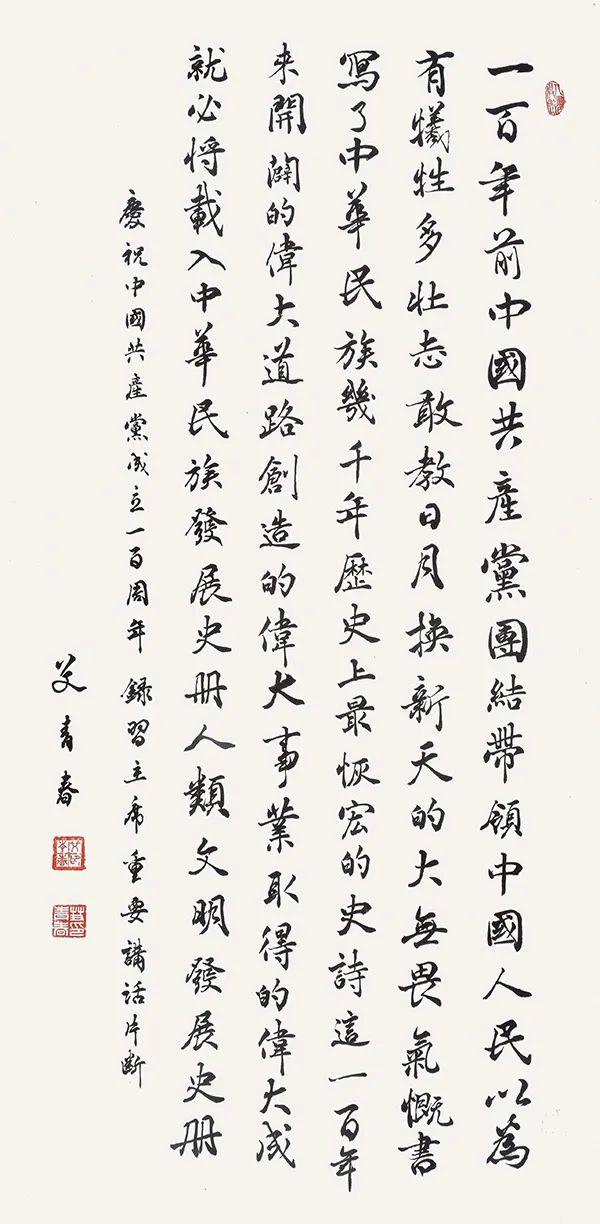 一百年前中國共產黨團結帶領中國人民以為
有犧牲多壯志敢教日月換新天的大無畏氣慨書
寫了中華民族幾千年歷史上最恢宏的史詩這一百年
來開闢的偉大道路創造的偉大事業取得的偉大成
就必將載入中華民族發展史冊人類文明發展史冊
慶祝中國共產黨成立一百周年 錄習主席重要講話片斷
艾青春